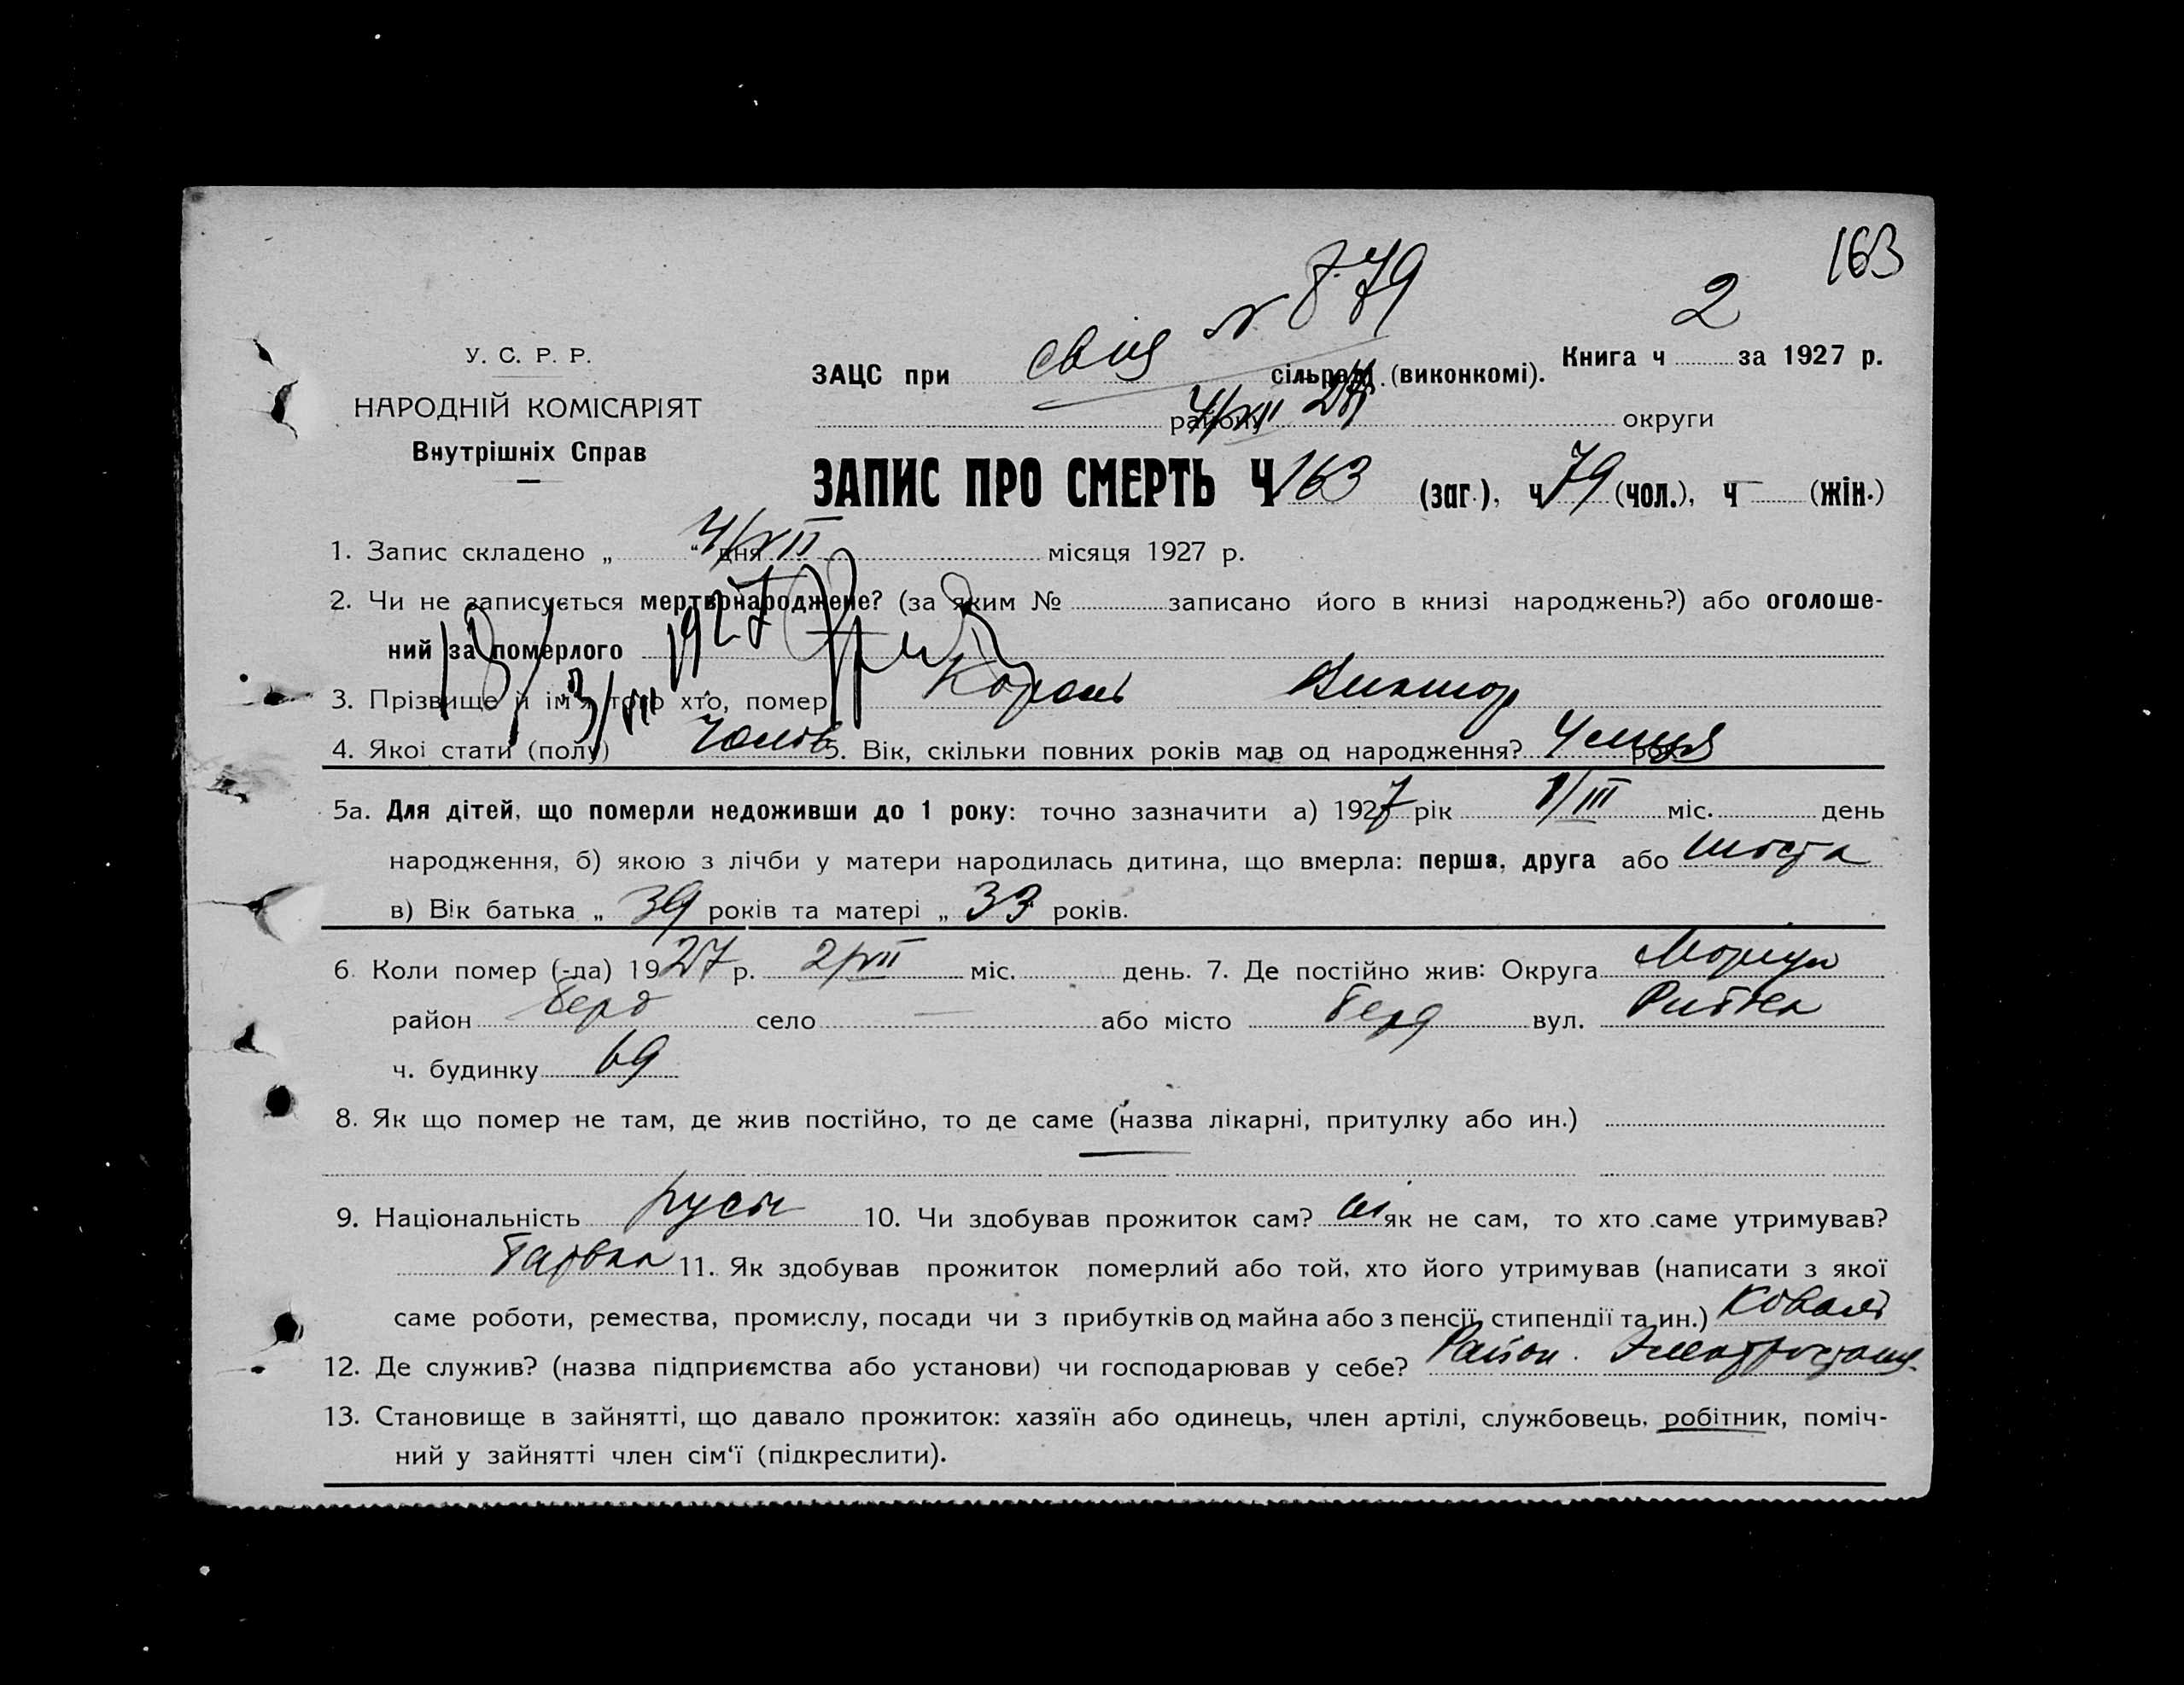 163
№ 879
2
У. С. Р. Р.
ЗАЦС при свід сільраді (виконкомі). Книга ч за 1927 р.
НАРОДНІЙ КОМІСАРІЯТ
району 4/VII 27 округи
Внутрішніх Справ
ЗАПИС ПРО СМЕРТЬ Ч 163 (заг.), ч 79 (чол.), ч — (жін.)
1. Запис складено „ 4/VII “ дня місяця 1927 р.
2. Чи не записується мертвонароджене? (за яким № записано його в книзі народжень?) або оголоше-
ний за померлого
3. Прізвище й ім'я того хто, помер Король Виктор
4. Якої стати (полу) Чолов 5. Вік, скільки повних років мав од народження? 4 місця рок
5а. Для дітей, що померли недоживши до 1 року: точно зазначити а) 1927 рік 1/III міс. день
народження, б) якою з лічби у матери народилась дитина, що вмерла: перша, друга або шоста
в) Вік батька „ 39 років та матері „ 33 років.
6. Коли помер (-да) 1927 р. 2/VII міс. день. 7. Де постійно жив: Округа Маріуп
район Берд село — або місто Берд вул.
ч. будинку 69
8. Як що помер не там, де жив постійно, то де саме (назва лікарні, притулку або ин.)
9. Національність русск 10. Чи здобував прожиток сам? ні як не сам, то хто саме утримував?
батько 11. Як здобував прожиток померлий або той, хто його утримував (написати з якої
саме роботи, ремества, промислу, посади чи з прибутків од майна або з пенсії, стипендії та ин.) Коваль
12. Де служив? (назва підприємства або установи) чи господарював у себе? Район. Электростанц.
13. Становище в зайнятті, що давало прожиток: хазяїн або одинець, член артілі, службовець, робітник, поміч-
ний у зайнятті член сім'ї (підкреслити).